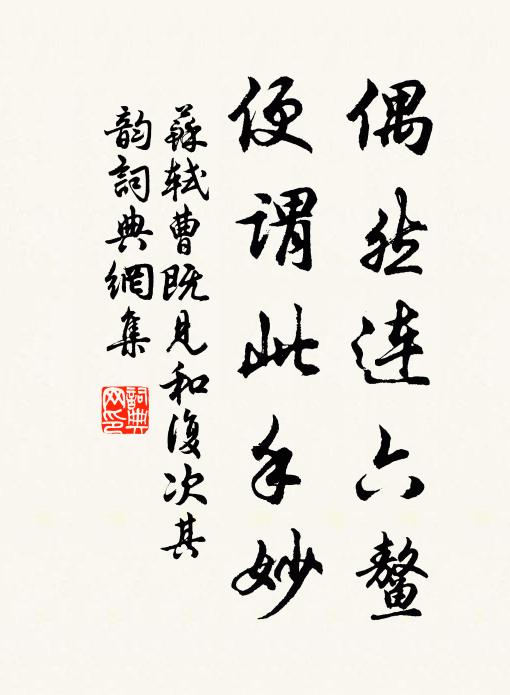 偶然連六鳌
便謂此手妙
蘇軾曹既見和復次其
韵詞典網集
詞典
网印